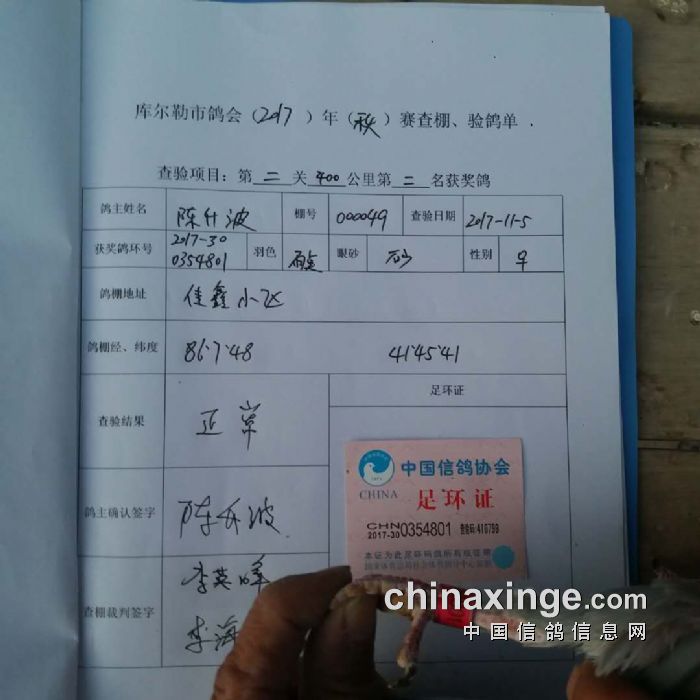 库尔勒市鸽会（2017）年（秋）赛查棚、验鸽单
查验项目：第二关400公里第二名获奖鸽
鸽主姓名 陈升波 棚号 000049 查验日期 2017-11-5
获奖鸽环号 2017-30 0354801 羽色 眼砂 性别 早
鸽棚地址 佳鑫小区
鸽棚经、纬度 86·7·48 41·45·41
查验结果 正常 足环证
鸽主确认签字 陈升波
查棚裁判签字 李英峰
李海
中国信鸽协会
CHINA
足环证
CHN
2017-30 0354801
chinaxinge.com
中国信鸽信息网